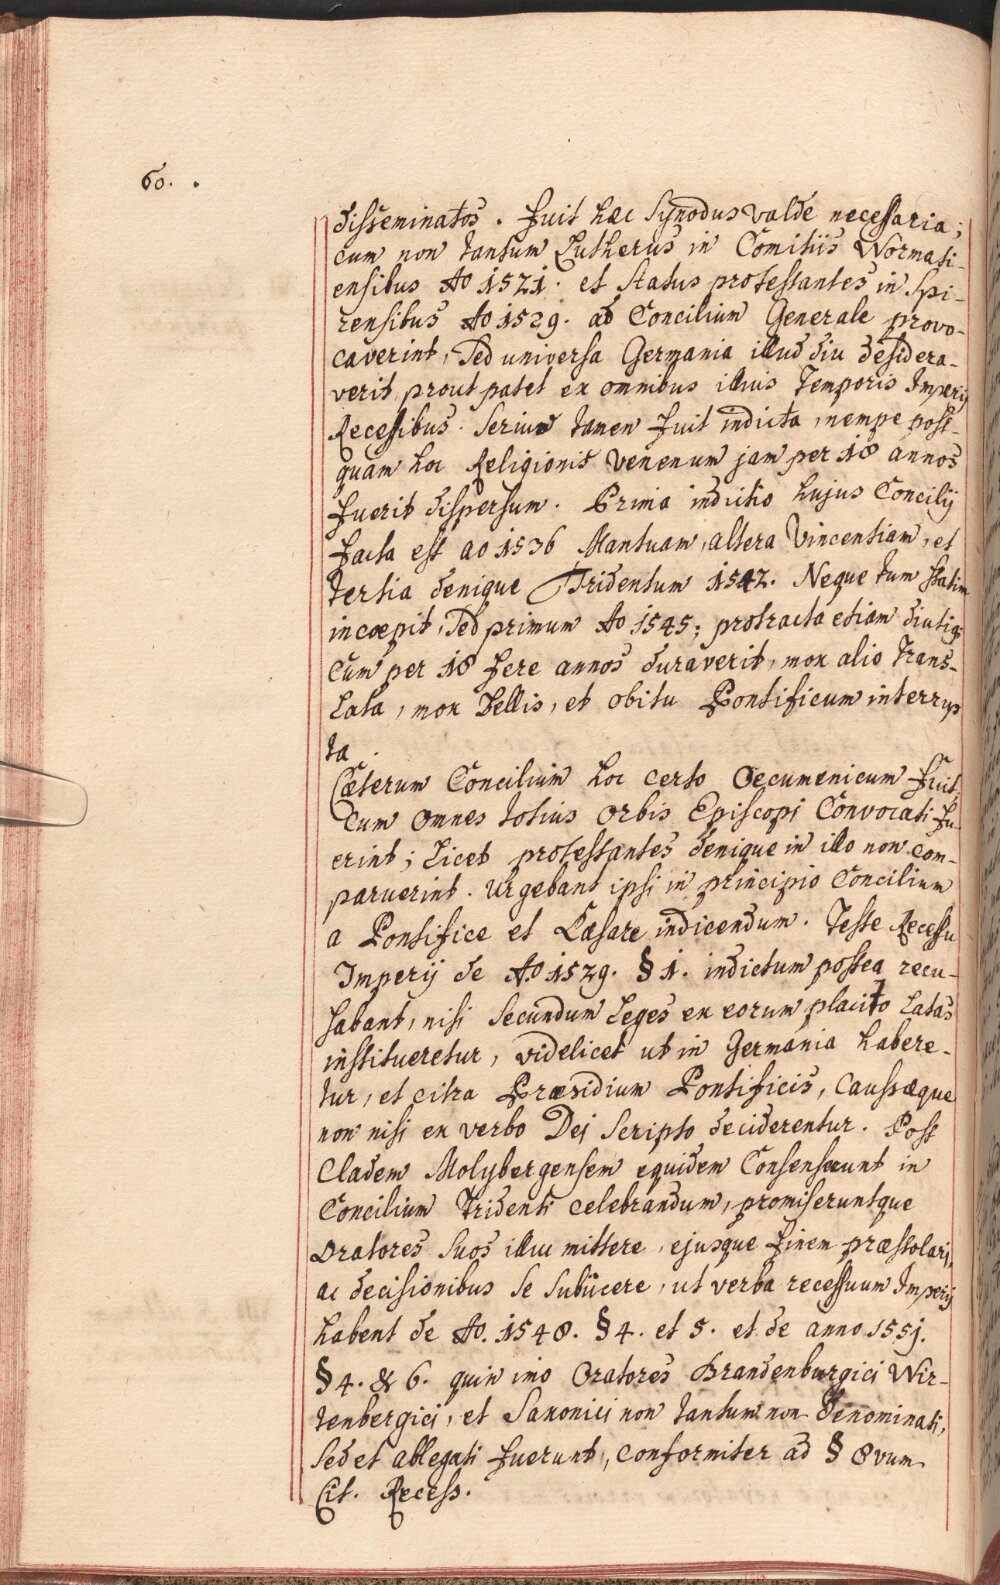 60.
disseminatos. Fuit hæc Synodus valde necessaria;
cum non tantum Lutherus in Comitiis Wormati-
ensibus Ao 1521. et Status protestantes in Spi-
rensibus Ao 1529. ad Concilium Generale provo-
caverint, sed universa Germania illud diu desidera-
verit, prout patet ex omnibus illius Temporis Imperij
Recessibus. Serius tamen fuit indicta, nempe post-
quam hoc Religionis venenum jam per 18 annos
fuerit dispersum. Prima indictio hujus Concilij
facta est ao 1536 Mantuam, altera Vincentiam, et
tertia denique Tridentum 1542. Neque tum statim
incoepit, sed primum Ao 1545; protracta etiam diutiq
Cum per 18 fere annos duraverit, mox alio Trans-
lata, mox bellis, et obitu Pontificum interrup
ta.
Cæterum Concilium hoc certo Oecumenicum fuit.
Cum omnes totius orbis Episcopi Convocati fu-
erint; licet protestantes denique in illo non com-
paruerint. Urgebant ipsi in principio Concilium
a Pontifice et Cæsare indicendum. Teste Recessu
Imperij de Ao. 1529. § 1. indictum postea recu-
sabant, nisi secundum Leges ex eorum placito Latas
institueretur, videlicet ut in Germania habere-
tur, et citra Præsidium Pontificis, Caussæque
non nisi ex verbo Dei scripto deciderentur. Post
Cladem Molybergensem equidem Consenserunt in
Concilium Tridenti celebrandum, promiseruntque
Oratores suos illuc mittere, ejusque finem præstolari,
ac decisionibus se subiicere, ut verba recessuum Imperij
habent de Ao. 1548. § 4. et 5. et de anno 1551.
§ 4. & 6. quin imo Oratores Brandenburgici Wir-
tenbergici, et Saxonici non tantum non denominati,
sed et ablegati fuerunt, conformiter ad § 8vum
Cit. Recess.